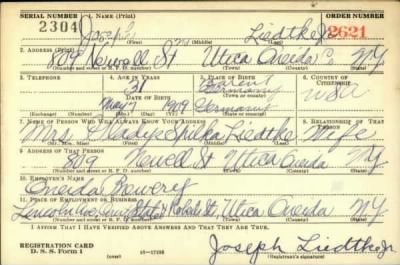 SERIAL NUMBER 1. NAME (Print) ORDER NUMBER
2304 Joseph M Liedtke Jr 2621
(First) (Middle) (Last)
2. ADDRESS (Print)
809 Newell St Utica Oneida Co NY
(Number and street or R. F. D. number) (Town) (County) (State)
3. TELEPHONE 4. AGE IN YEARS 5. PLACE OF BIRTH 6. COUNTRY OF CITIZENSHIP
31 USA
DATE OF BIRTH
May 7 1909 Germany
(Exchange) (Number) (Mo.) (Day) (Yr.) (State or country)
7. NAME OF PERSON WHO WILL ALWAYS KNOW YOUR ADDRESS 8. RELATIONSHIP OF THAT PERSON
Mrs. Gladys Liedtke Wife
(Mr., Mrs., Miss) (First) (Middle) (Last)
9. ADDRESS OF THAT PERSON
809 Newell St Utica Oneida NY
(Number and street or R. F. D. number) (Town) (County) (State)
10. EMPLOYER'S NAME
Oneida Brewery
11. PLACE OF EMPLOYMENT OR BUSINESS
Lincoln Ave State & Roberts St, Utica Oneida NY
(Number and street or R. F. D. number) (Town) (County) (State)
I AFFIRM THAT I HAVE VERIFIED ABOVE ANSWERS AND THAT THEY ARE TRUE.
REGISTRATION CARD
D. S. S. Form 1 (over) Joseph Liedtke Jr
(Registrant's signature)